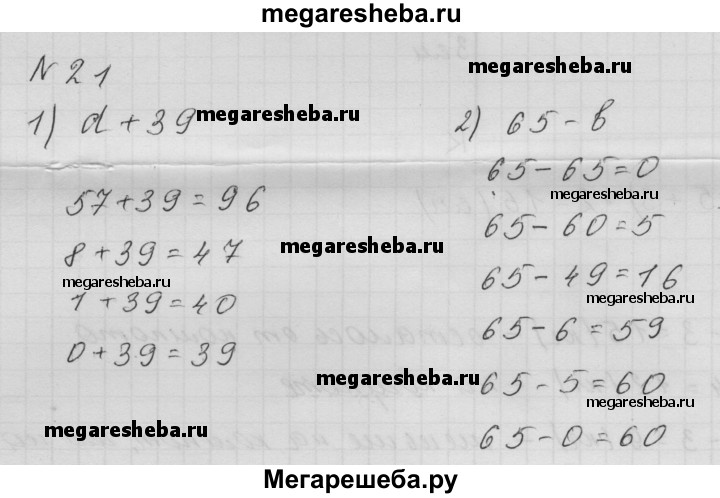 megaresheba.ru
N 21
1) d + 39
megaresheba.ru
57 + 39 = 96
8 + 39 = 47
megaresheba.ru
1 + 39 = 40
0 + 39 = 39
megaresheba.ru
megaresheba.ru
megaresheba.ru
2) 65 - в
megaresheba.ru
65 - 65 = 0
megaresheba.ru
65 - 60 = 5
65 - 49 = 16
megaresheba.ru
65 - 6 = 59
megaresheba.ru
65 - 5 = 60
megaresheba.ru
65 - 0 = 60
Мегарешеба.ру